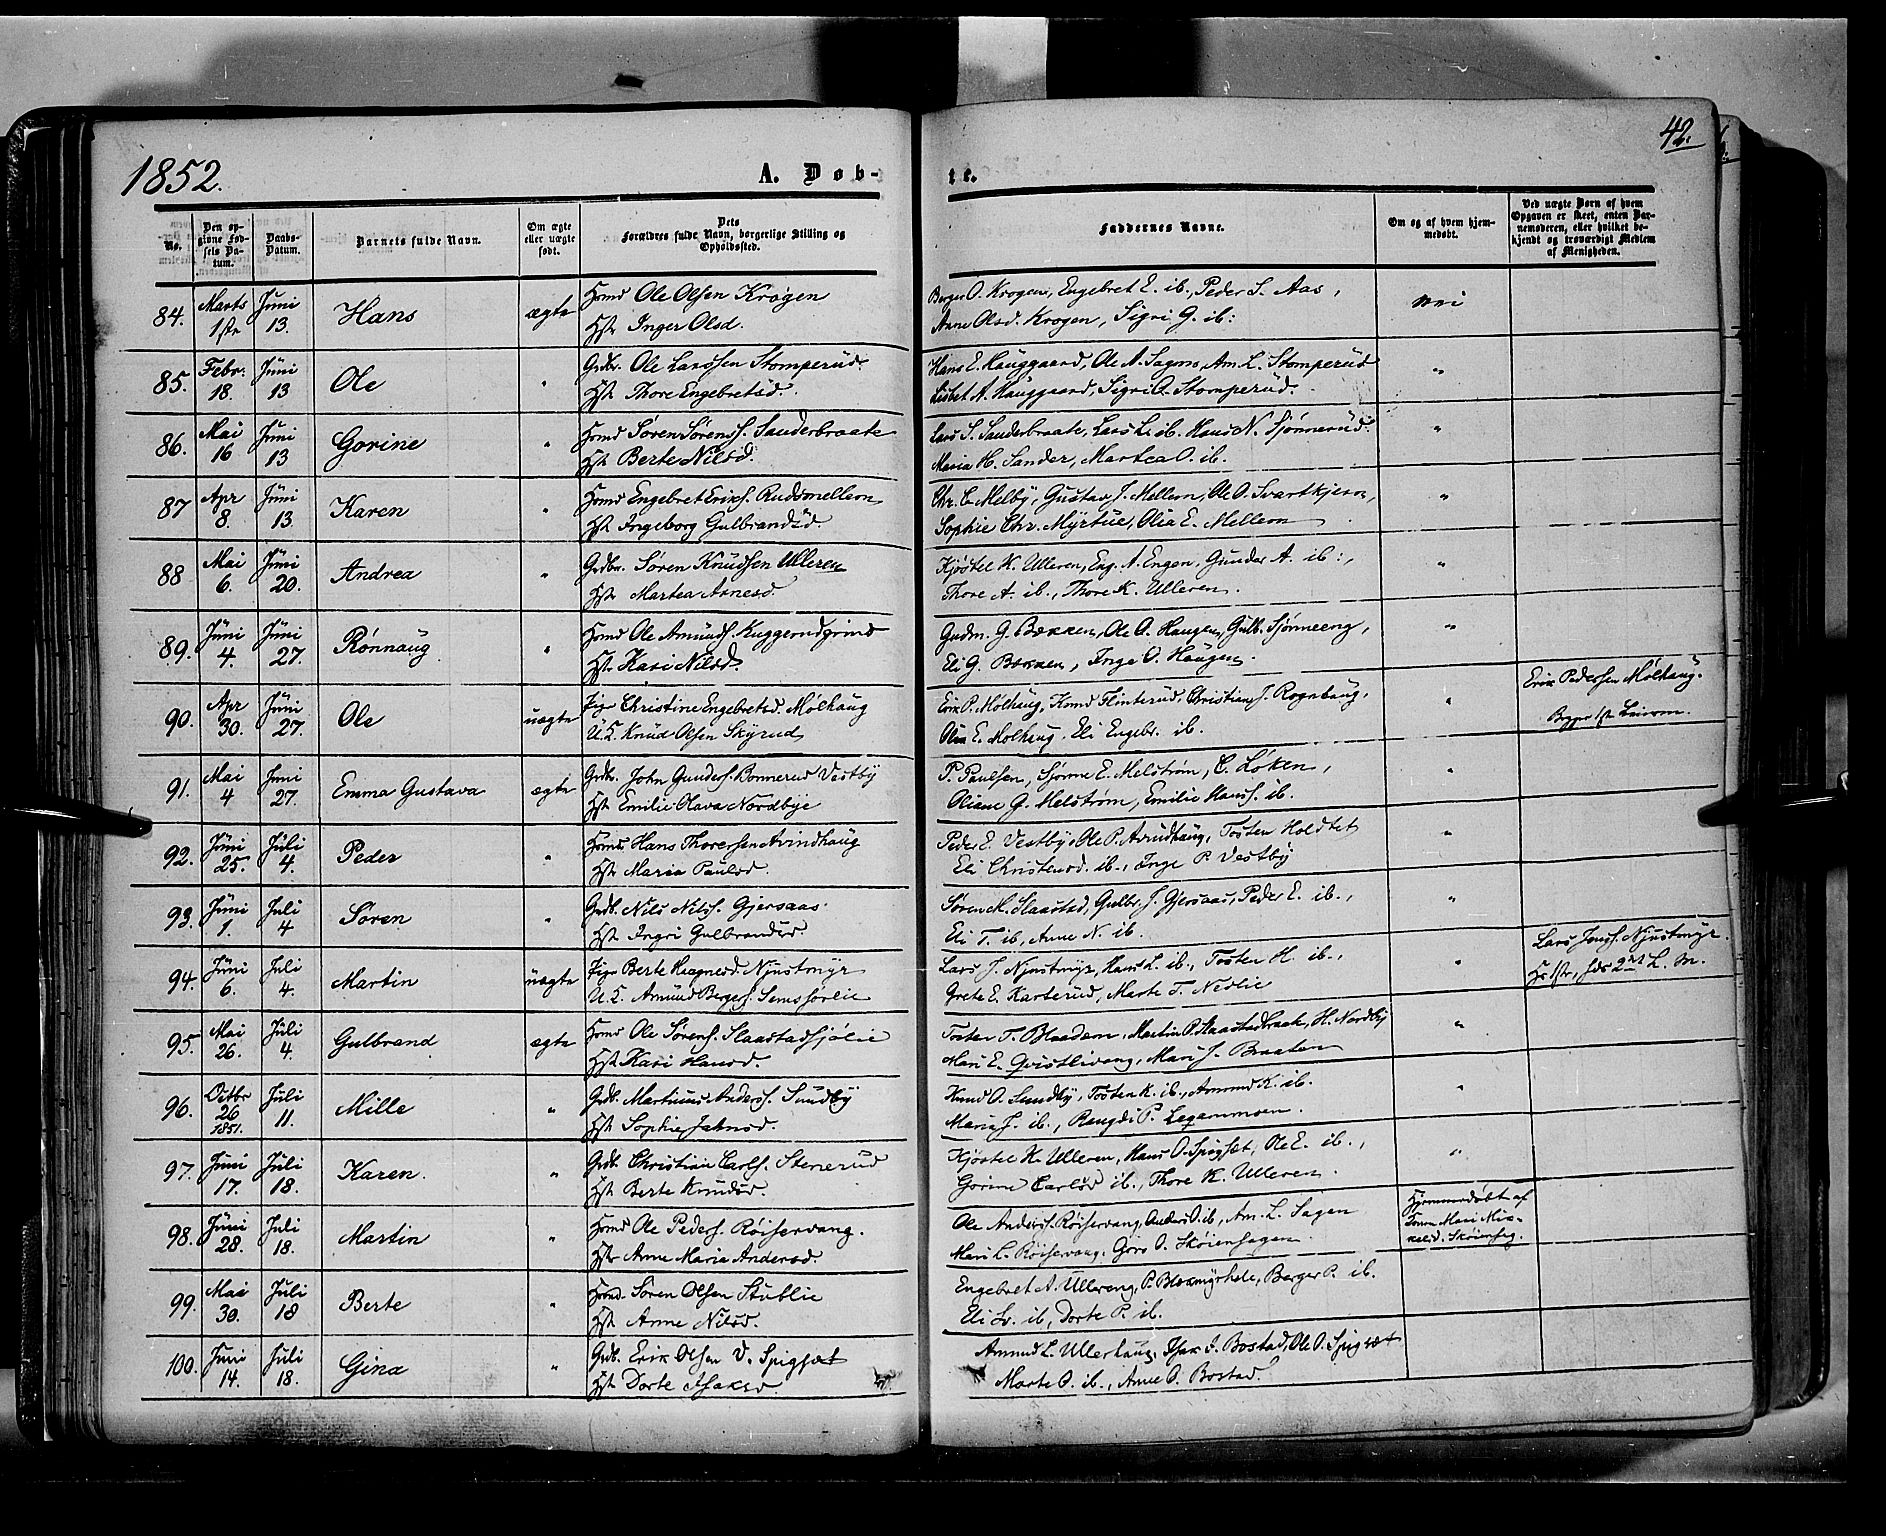 1852.
A. Døb-
te.
42.
No.
Den opgivne Fødsels Datum.
Daabs-Datum.
Barnets fulde Navn.
Om ægte eller uægte født.
Dets Forældres fulde Navn, borgerlige Stilling og Opholdssted.
Faddernes Navne.
Om og af hvem hjemmedøbt.
Ved uægte Børn af hvem Opgaven er skeet, enten Barnemoderen, eller hvilket bekjendt og troværdigt Medlem af Menigheden.
84. Marts 1ste Juni 13. Hans ægte Hsmd Ole Olsen Krogen
Hst. Inger Olsd.
Berger O. Krogen, Engebret E. ib., Peder S. Aas,
Anne Olsd. Krogen, Sigri G. ib:
nei
85. Febr. 18. Juni 13 Ole " Grdbr. Ole Larssen Stomperud.
Hst. Thore Engebretsd.
Hans E. Hauggaard, Ole A. Sagen, Am. L. Stomperud
Lisbet A. Hauggaard, Sigri O. Stomperud.
"
86. Mai 16 Juni 13 Gorine " Hsmd Søren Sørens. Sanderbraate
Hst. Berte Nilsd.
Lars S. Sanderbraate, Lars L. ib. Hans N. Sjønnerud.
Maria H. Sander, Martea O. ib.
"
87 Apr 8. Juni 13. Karen " Hsmd Engebret Eriks. Rudsmellem
Hst. Ingeborg Gulbrandsd.
Chr. C. Melby, Gustav J. Mellem, Ole O. Svartkjern,
Sophie Chr. Myrtue, Olia E. Mellem
"
88 Mai 6. Juni 20. Andrea " Grdbr. Søren Knudsen Ulleren
Hst. Martea Arnesd.
Kjøstel K. Ulleren, Eng. A. Engen, Gunder A. ib:,
Thore A. ib., Thore K. Ulleren.
"
89. Juni 4. Juni 27. Rønnaug " Hsmd Ole Amunds. Kuggerudgrind
Hst. Kari Nilsd.
Gudm. G. Bakken, Ole O. Haugen, Gulb. Sjønneeng,
Eli G. Bakken, Inge O. Haugen.
"
90. Apr 30. Juni 27. Ole uægte Pige Christine Engebretsd. Mølhaug
U.K. Knud Olsen Skyrud
Erik P. Mølhaug, Knud Flinterud, Christian J. Rognhaug,
Olia E. Mølhaug. Eli Engebr. ib.
"
Erik Pedersen Mølhaug.
91. Mai 4 Juni 27. Emma Gustava ægte Grdbr. John Gunders. Bonnerud Vestby
Hst. Emilie Olava Nordbye
P. Paulsen, Sjønne E. Melstrøm, C. Løken,
Oliane G. Melstrøm, Emilie Hans. ib.
"
92. Juni 25. Juli 4. Peder " Hsmd Hans Thoressen Arvindhaug
Hst. Maria Paulsd.
Peder E. Vestby, Ole P. Arvidhaug, Tosten Holdtet
Eli Christensd. ib., Inge P. Vestby
"
93. Juni 1. Juli 4 Søren " Grdb. Nils Nilss. Gjersaas.
Hst. Ingri Gulbrandsd.
Søren M. Slaastad, Gulbr. J. Gjersaas, Peder E. ib.,
Eli T. ib, Anne N. ib.
"
94. Juni 6. Juli 4. Martin uægte Pige Berte Magnesd. Njustmyr
U.K. Amund Bergers. Semsjørlie
Lars J. Njustmyr, Hans L. ib., Tosten H. ib.,
Grete E. Karterud, Marte T. Nedlie
"
Lars Jonss. Njustmyr.
95. Mai 26. Juli 4. Gulbrand ægte Hsmd Ole Sørens. Slaastadsjølie
Hst. Kari Hansd.
Tosten T. Bladem, Martin P. Slaastadbraate, H. Nordby
Mari E. Qvistlivang, Mari J. Braaten
"
96. Octbr 26 1851. Juli 11. Mille " Grdb. Martinus Anders. Sundby
Hst. Sophie Jakosd.
Knud O. Sundby, Tosten K. ib., Ammund K. ib.
Maria J. ib., Rangdi P. Legammoen.
"
97. Juni 17. Juli 18. Karen. " Grdb. Christian Carls. Stenerud
Hst. Berte Knudsd.
Kjøstel K. Ulleren, Hans O. Spigset, Ole E. ib.,
Gorine Carlsd ib., Thore K. Ulleren.
"
98. Juni 28. Juli 18. Martin " Hsmd Ole Peders. Røiservang.
Hst. Anne Maria Andersd.
Ole Anders. Røiservang, Anders O. ib, Am. L. Sagen
Mari L. Røiservang, Goro O. Skøienhagen.
Hjemmedøbt af
Kone Mari Mik-
kelsd. Skøienhag.
99. Mai 30. Juli 18 Berte " Hsmd. Søren Olsen Stublie
Hst. Anne Nilsd.
Engebret A. Ullereng, P. Blekmyrhole, Berger P. ib.
Eli L. ib, Dorte P. ib.
100. Juni 14. Juli 18. Gina " Grdb. Erik Olsen V. Spigset
Hst. Dorte Isaksd
Ammund L. Ullerhaug, Isak I. Bostad, Ole O. Spigset
Marte O. ib., Anne O. Bostad.